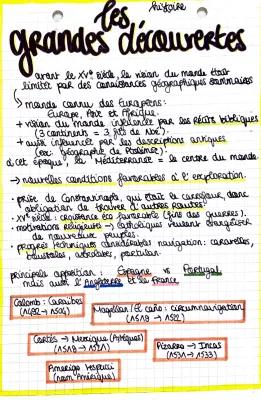 histoire
les
grandes découvertes
avant le XVe siècle, la vision du monde était
limitée par des connaissances géographiques sommaires
↳ monde connu des Européens :
Europe, Asie et Afrique.
+ vision du monde influencée par les récits bibliques
(3 continents = 3 fils de Noé).
+ aussi influencée par les descriptions antiques
(ex : géographie de Ptolémée).
à cet époque, la Méditerranée = le centre du monde.
→ nouvelles conditions favorables à l'exploration.
• prise de Constantinople, qui était le carrefour, donc
obligation de trouver d'autres routes.
• XVe siècle : croissance éco favorable (fins des guerres).
• motivations religieuses → catholiques veulent évangéliser
de nouveaux peuples.
• progrès techniques considérables navigation : caravelles,
boussoles, astrolabes, portulan.
principale opposition : Espagne vs Portugal
mais aussi l'Angleterre et la France
Colomb : Caraïbes
(1492 → 1504)
Magellan/El Cano : circumnavigation
(1519 → 1522)
Cortès → Mexique (Aztèques)
(1518 → 1521)
Pizarro → Incas
(1531 → 1533)
Amerigo Vespucci
(nom Amérique)